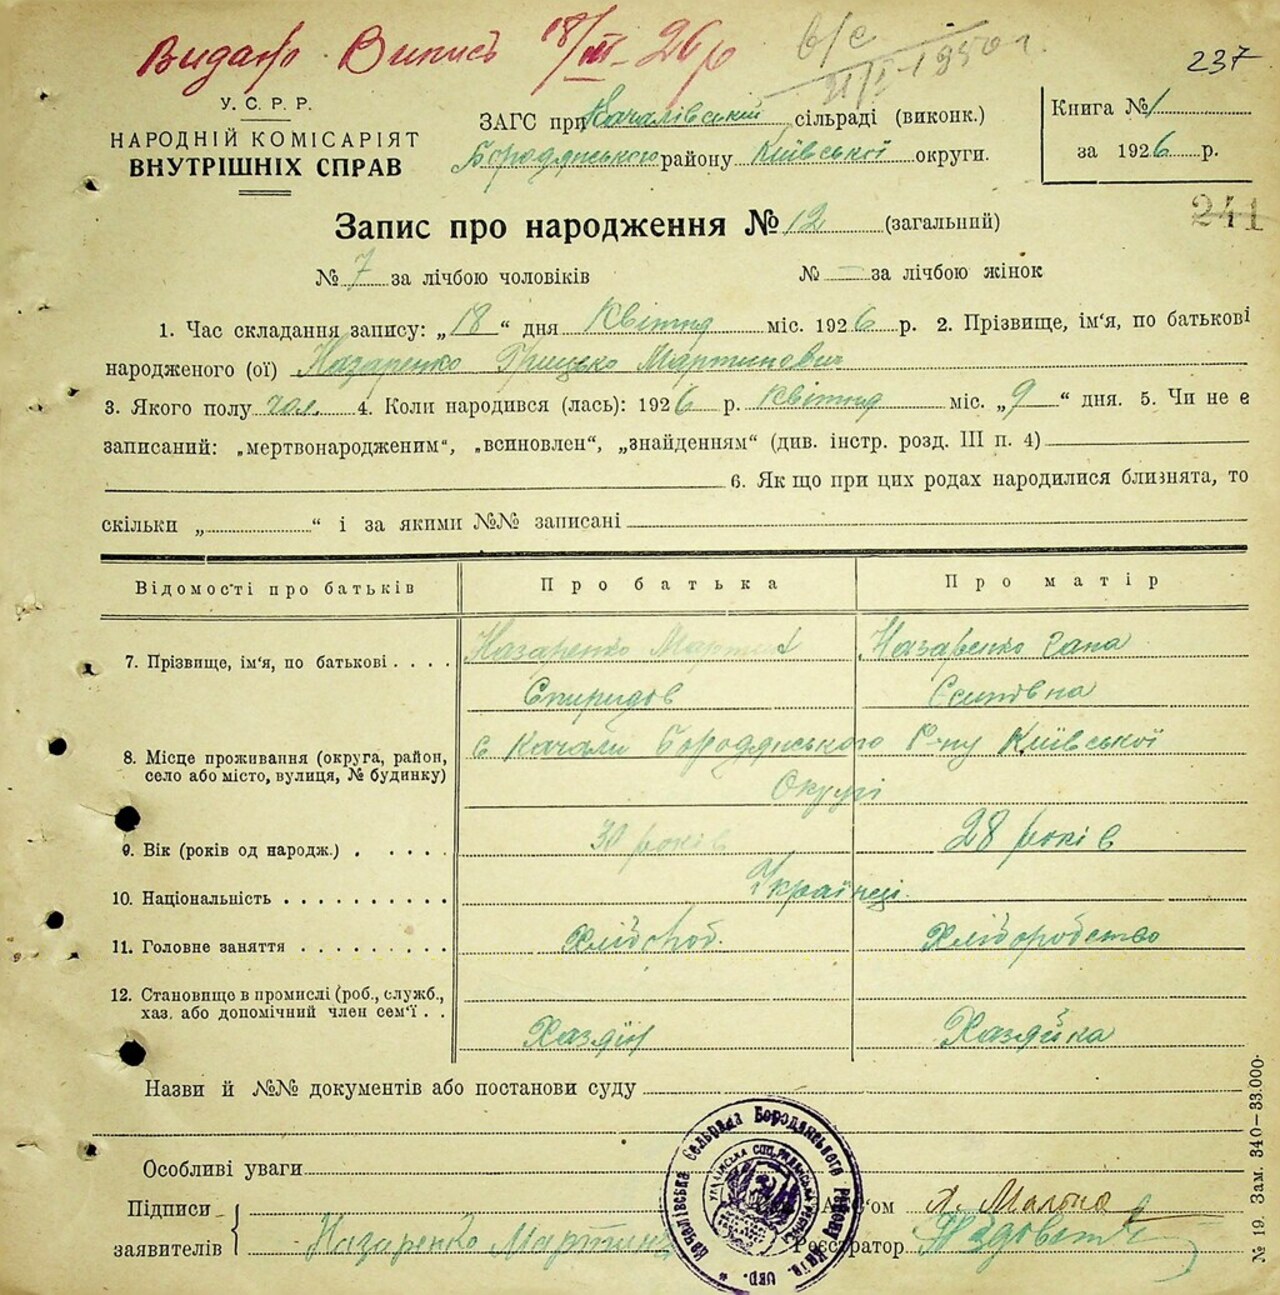 Видано Випись 18/III-26 р
в/с
21/I-1950 г.
237
У. С. Р. Р.
НАРОДНІЙ КОМІСАРІЯТ
ВНУТРІШНІХ СПРАВ
ЗАГС при Качалівській сільраді (виконк.)
Бородянського району Київської округи.
Книга № 1
за 1926 р.
241
Запис про народження № 12 (загальний)
№ 7 за лічбою чоловіків № — за лічбою жінок
1. Час складання запису: „18“ дня Квітня міс. 1926 р. 2. Прізвище, ім‘я, по батькові
народженого (ої) Назаренко Грицько Мартинович
3. Якого полу чол. 4. Коли народився (лась): 1926 р. Квітня міс. „9“ дня. 5. Чи не є
записаний: „мертвонародженим“, „всиновлен“, „знайденням“ (див. інстр. розд. III п. 4)
6. Як що при цих родах народилися близнята, то
скільки „ “ і за якими №№ записані
Відомості про батьків Про батька Про матір
7. Прізвище, ім‘я, по батькові . . . . Назаренко Мартин Назаренко Гапа
Спиридов Єсипівна
8. Місце проживання (округа, район, село або місто, вулиця, № будинку) с Качали Бородянського Р-ну Київської
Округі
9. Вік (років од народж.) . . . . . 30 років 28 років
10. Національність . . . . . . . . . . Українці.
11. Головне заняття . . . . . . . . . Хлібороб. Хліборобство
12. Становище в промислі (роб., служб.,
хаз. або допомічний член сем‘ї . . Хазяїн Хазяйка
Назви й №№ документів або постанови суду
Особливі уваги
Підписи
заявителів Назаренко Мартин
Качалівська Сельрада Бородянського району Київ. окр.
Реєстратор
№ 19. Зам. 340—33.000.